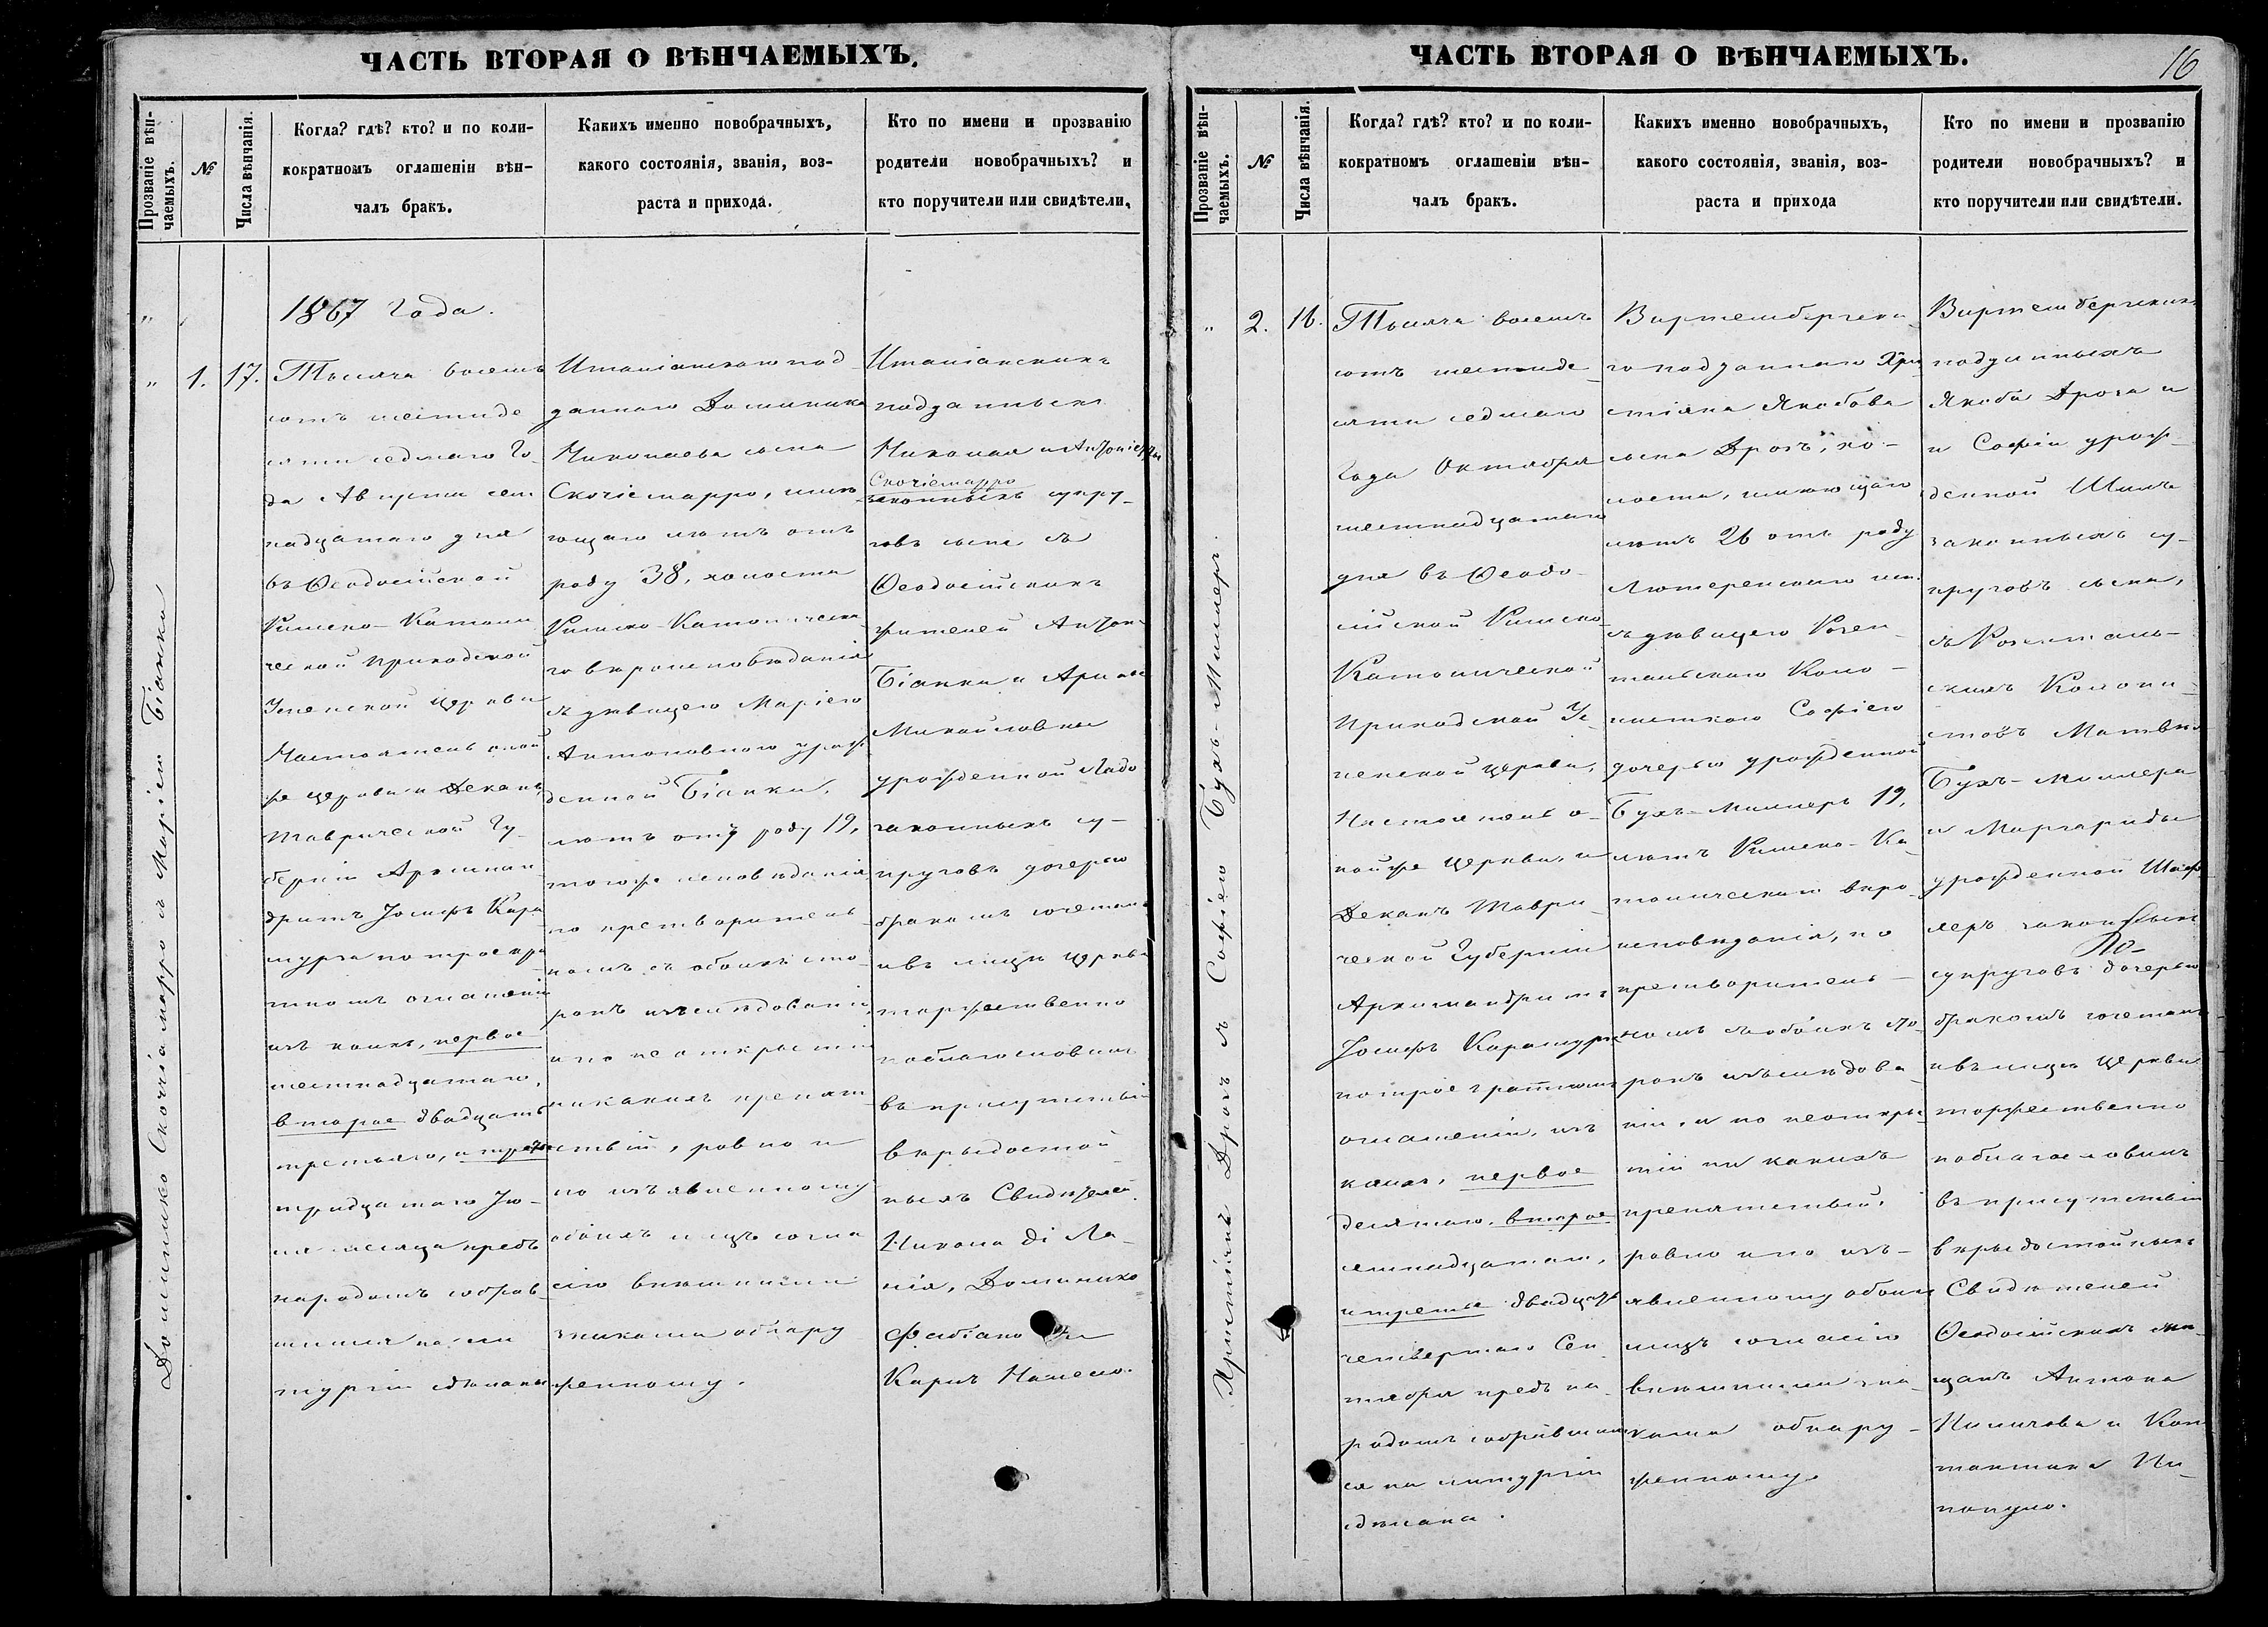 ЧАСТЬ ВТОРАЯ О ВѢНЧАЕМЫХЪ.
Прозваніе вѣн-
чаемыхъ.
№
Числа вѣнчанія.
Когда? гдѣ? кто? и по коли-
кократномъ оглашеніи вѣн-
чалъ бракъ.
Какихъ именно новобрачныхъ,
какого состоянія, званія, воз-
раста и прихода.
Кто по имени и прозванію
родители новобрачныхъ? и
кто поручители или свидѣтели.
Доминико Скочіамарро съ Маріею Біанко
1.
17.
1867 Года.
Тысяча восемь
сотъ шестьде
сятъ седмаго Го-
да Августа сем
надцатаго дня
въ Ѳеодосійской
Римско-Католи
ческой приходской
Успенской Церкви
Настоятель оной
же церкви и Деканъ
Таврической Гу-
берніи Архиман
дритъ Іосифъ Кара
мурза по троекра
тномъ оглашеніи
изъ коихъ, первое
шестнадцатаго,
второе двадцать
третьяго, и третье
тридцатаго Ію-
ля месяца предъ
народомъ собрав-
шимся на ли
тургіи сдѣланы
Италіанскаго под
даннаго Доминика
Николаева сына
Скочіемарро, имѣ
ющаго лѣтъ отъ
роду 38, холоста
Римско-Католическа
го вѣроисповѣданія
съ дѣвицею Маріею
Антоновною урож
денной Біанки,
лѣтъ отъ роду 19,
тогоже исповѣданія
по предваритель
номъ съ обоихъ сто-
ронъ изслѣдованіи,
и по неоткрытіи
никакихъ препят
ствій, равно и
по изъявленному
обоихъ лицъ согла
сію внѣшними
знаками обнару
женному.
Италіанскихъ
подданныхъ
Николая и Антоніеты
Скочіемарро
законныхъ супру-
говъ сына съ
Ѳеодосійскихъ
жителей Антона
Біанки и Арины
Михайловны
урожденной Ладо
законныхъ су-
пруговъ дочерью
бракомъ сочеталъ
и въ лицѣ церкви
торжественно
поблагословилъ
въ присутствіи
вѣрыдостой
ныхъ Свидѣтелей
Никола ді Ла-
нія, Доминико
Фабіано и
Карлъ
ЧАСТЬ ВТОРАЯ О ВѢНЧАЕМЫХЪ.
16
Прозваніе вѣн-
чаемыхъ.
№
Числа вѣнчанія.
Когда? гдѣ? кто? и по коли-
кократномъ оглашеніи вѣн-
чалъ бракъ.
Какихъ именно новобрачныхъ,
какого состоянія, званія, воз-
раста и прихода
Кто по имени и прозванію
родители новобрачныхъ? и
кто поручители или свидѣтели.
Христіанъ Дрозъ съ Софіею Бухъ-Миллеръ.
2.
16.
Тысяча восемь
сотъ шестьде
сятъ седмаго
Года Октября
шестнадцатаго
дня въ Ѳеодо-
сійской Римско-
Католической
приходской Ус
пенской церкви,
Настоятель о-
нойже Церкви, и
Деканъ Таври
ческой Губерніи
Архимандритъ
Іосифъ Карамурза
по троекратномъ
оглашеніи, изъ
коихъ, первое
девятаго, второе
семнадцатаго,
и третье двадцать
четвертаго Сен
тября предъ на-
родомъ собравшим
ся на литургіи
сдѣлана.
Виртембергска
го подданнаго Хри
стіана Якобова
сына Дрозъ, хо-
лоста, имѣющаго
лѣтъ 26 отъ роду
Лютеранскаго исп.
съ дѣвицею Розен
тальскаго Коло-
нисткою Софіею
дочерью урожденной
Бухъ-Миллеръ 19,
лѣтъ Римско-Ка
толическаго вѣро
исповѣданія, по
предваритель-
номъ съ обоихъ сто
ронъ изслѣдова
ніи, и по неоткры
тіи ни какихъ
препятствій,
равно и по изъ-
явленному обоихъ
лицъ согласію
внѣшними зна
ками обнару-
женному.
Виртембергскихъ
подданныхъ
Якоба Дроза и
и Софіи урож-
денной Шмль
законныхъ су-
пруговъ сына,
съ Розенталь-
скихъ Колони-
стовъ Матвѣя
Бухъ-Миллера
и Маргариды
урожденной
законныхъ
супруговъ дочерью
бракомъ сочеталъ
и въ лицѣ Церкви
торжественно
поблагословилъ
въ присутствіи
вѣрыдостойныхъ
Свидѣтелей
Ѳеодосійскихъ мѣ-
щанъ Антона
и Кон
стантина